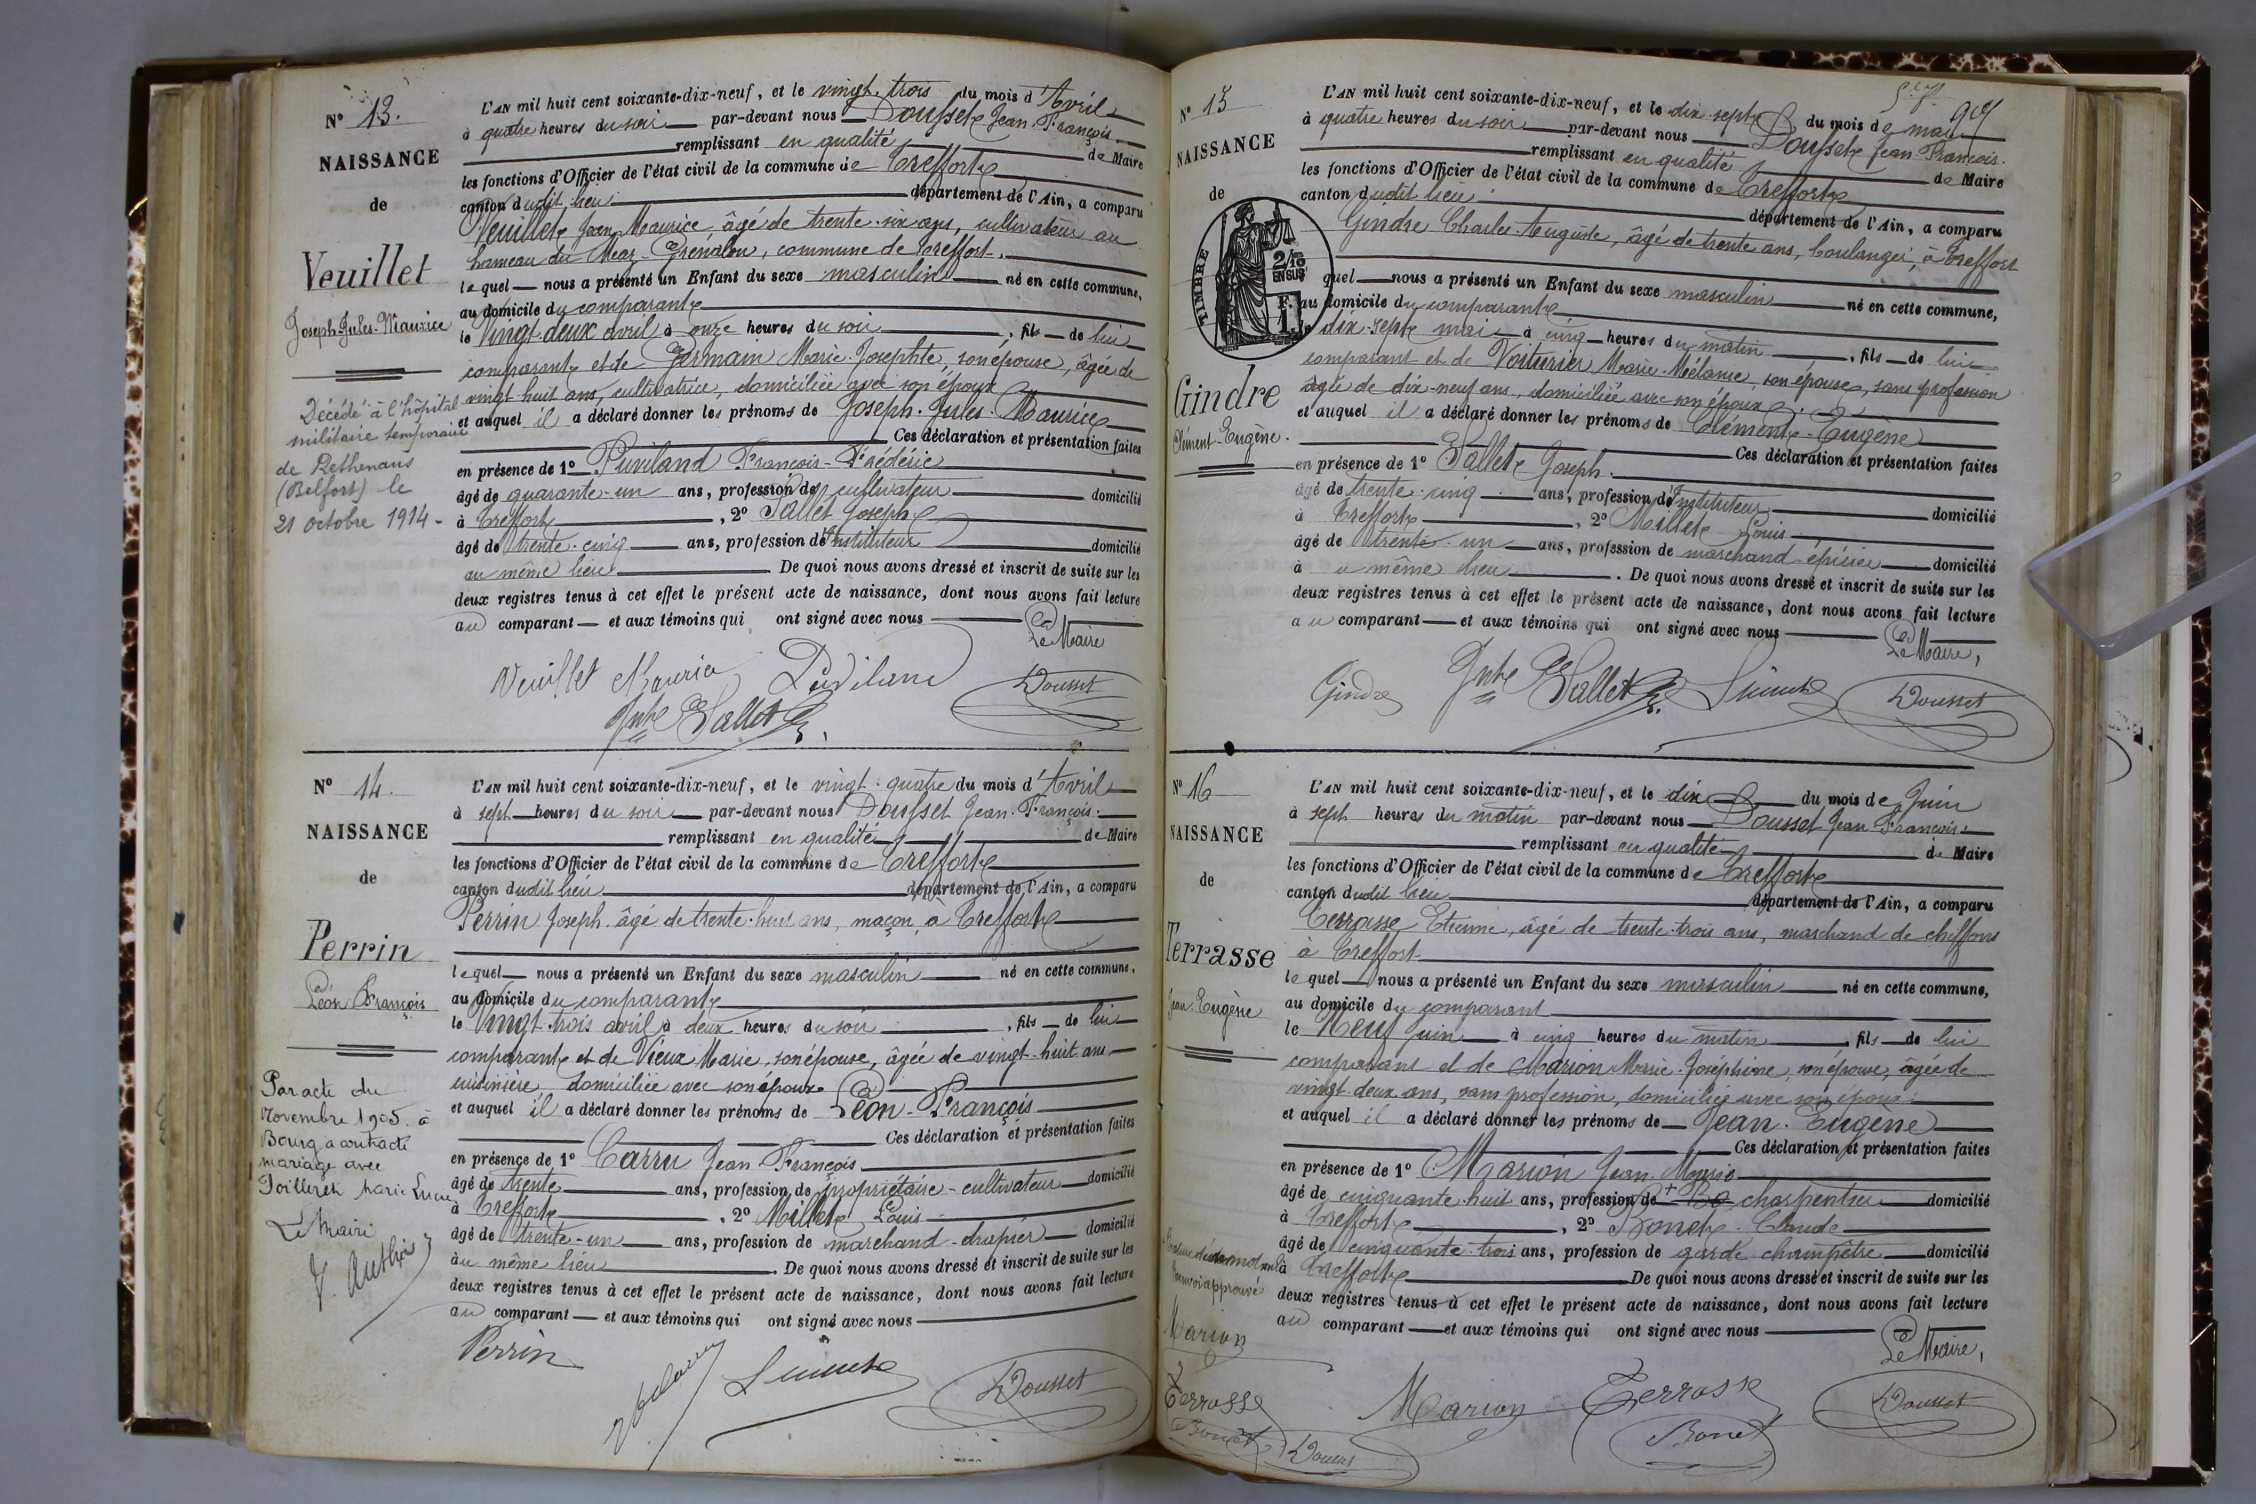 N° 13.
NAISSANCE
de
Veuillet
Joseph-Jules-Maurice
Décédé à l'hôpital
militaire temporaire
de Rethenans
(Belfort) le
21 octobre 1914 -
L'AN mil huit cent soixante-dix-neuf, et le vingt-trois du mois d'Avril
à quatre heures du soir par-devant nous Dousset Jean-François
remplissant en qualité de Maire
les fonctions d'Officier de l'état civil de la commune de Treffort
canton dudit lieu département de l'Ain, a comparu
Veuillet Jean Maurice, âgé de trente-six ans, cultivateur au
hameau du Mas-Grenalon, commune de Treffort.
lequel nous a présenté un Enfant du sexe masculin né en cette commune,
au domicile du comparant
le Vingt-deux avril à onze heures du soir, fils de lui
comparant et de Germain Marie-Josephte, son épouse, âgée de
vingt huit ans, cultivatrice, domiciliée avec son époux
et auquel il a déclaré donner les prénoms de Joseph-Jules-Maurice
Ces déclaration et présentation faites
en présence de 1° Puviland François-Frédéric
âgé de quarante-un ans, profession de cultivateur domicilié
à Treffort, 2° Sallet Joseph
âgé de trente-cinq ans, profession d'Instituteur domicilié
au même lieu. De quoi nous avons dressé et inscrit de suite sur les
deux registres tenus à cet effet le présent acte de naissance, dont nous avons fait lecture
au comparant et aux témoins qui ont signé avec nous
Le Maire
Veuillet Maurice Puvilland
Sallet Dousset
N° 14.
NAISSANCE
de
Perrin
Léon François
Par acte du
Novembre 1905. à
Bourg a contracté
mariage avec
Marie
Le Maire
L'AN mil huit cent soixante-dix-neuf, et le vingt-quatre du mois d'Avril
à sept heures du soir par-devant nous Dousset Jean-François.
remplissant en qualité de Maire
les fonctions d'Officier de l'état civil de la commune de Treffort
canton dudit lieu département de l'Ain, a comparu
Perrin Joseph âgé de trente-huit ans, maçon, à Treffort
lequel nous a présenté un Enfant du sexe masculin né en cette commune,
au domicile du comparant
le Vingt-trois avril à deux heures du soir, fils de lui
comparant et de Vieux Marie, son épouse, âgée de vingt-huit ans
cuisinière, domiciliée avec son époux
et auquel il a déclaré donner les prénoms de Léon-François
Ces déclaration et présentation faites
en présence de 1° Carru Jean François
âgé de trente ans, profession de propriétaire-cultivateur domicilié
à Treffort, 2° Millet Louis
âgé de trente-un ans, profession de marchand-drapier domicilié
au même lieu. De quoi nous avons dressé et inscrit de suite sur les
deux registres tenus à cet effet le présent acte de naissance, dont nous avons fait lecture
au comparant et aux témoins qui ont signé avec nous
Perrin Dousset
N° 15
NAISSANCE
de
TIMBRE
2/10
EN SUS
Gindre
Clément-Eugène.
L'AN mil huit cent soixante-dix-neuf, et le dix-sept du mois de mai
à quatre heures du soir par-devant nous Dousset Jean-François.
remplissant en qualité de Maire
les fonctions d'Officier de l'état civil de la commune de Treffort
canton dudit lieu département de l'Ain, a comparu
Gindre Charles-Auguste, âgé de trente ans, boulanger, à Treffort
quel nous a présenté un Enfant du sexe masculin né en cette commune,
au domicile du comparant
le dix-sept mai à cinq heures du matin, fils de lui
comparant et de Voiturier Marie-Mélanie, son épouse, sans profession
âgée de dix-neuf ans, domiciliée avec son époux
et auquel il a déclaré donner les prénoms de Clément-Eugène
Ces déclaration et présentation faites
en présence de 1° Sallet Joseph.
âgé de trente-cinq ans, profession d'Instituteur domicilié
à Treffort, 2° Millet Louis
âgé de trente-un ans, profession de marchand-épicier domicilié
à u même lieu. De quoi nous avons dressé et inscrit de suite sur les
deux registres tenus à cet effet le présent acte de naissance, dont nous avons fait lecture
au comparant et aux témoins qui ont signé avec nous
Le Maire,
Gindre Sallet Dousset
N° 16
NAISSANCE
de
Terrasse
Jean-Eugène
approuvé
Marion
Terrasse
Bonet Dousset
L'AN mil huit cent soixante-dix-neuf, et le dix du mois de Juin
à sept heures du matin par-devant nous Dousset Jean-François
remplissant en qualité de Maire
les fonctions d'Officier de l'état civil de la commune de Treffort
canton dudit lieu département de l'Ain, a comparu
Terrasse Etienne, âgé de trente-trois ans, marchand de chiffons
à Treffort
lequel nous a présenté un Enfant du sexe masculin né en cette commune,
au domicile du comparant
le Neuf juin à cinq heures du matin, fils de lui
comparant et de Marion Marie-Joséphine, son épouse, âgée de
vingt-deux ans, sans profession, domiciliée avec son époux
et auquel il a déclaré donner les prénoms de Jean-Eugène
Ces déclaration et présentation faites
en présence de 1° Marion Jean-Marie
âgé de cinquante-huit ans, profession de + charpentier domicilié
à Treffort, 2° Bonet Claude
âgé de cinquante-trois ans, profession de garde champêtre domicilié
à Treffort De quoi nous avons dressé et inscrit de suite sur les
deux registres tenus à cet effet le présent acte de naissance, dont nous avons fait lecture
au comparant et aux témoins qui ont signé avec nous
Le Maire,
Marion Terrasse Bonet Dousset